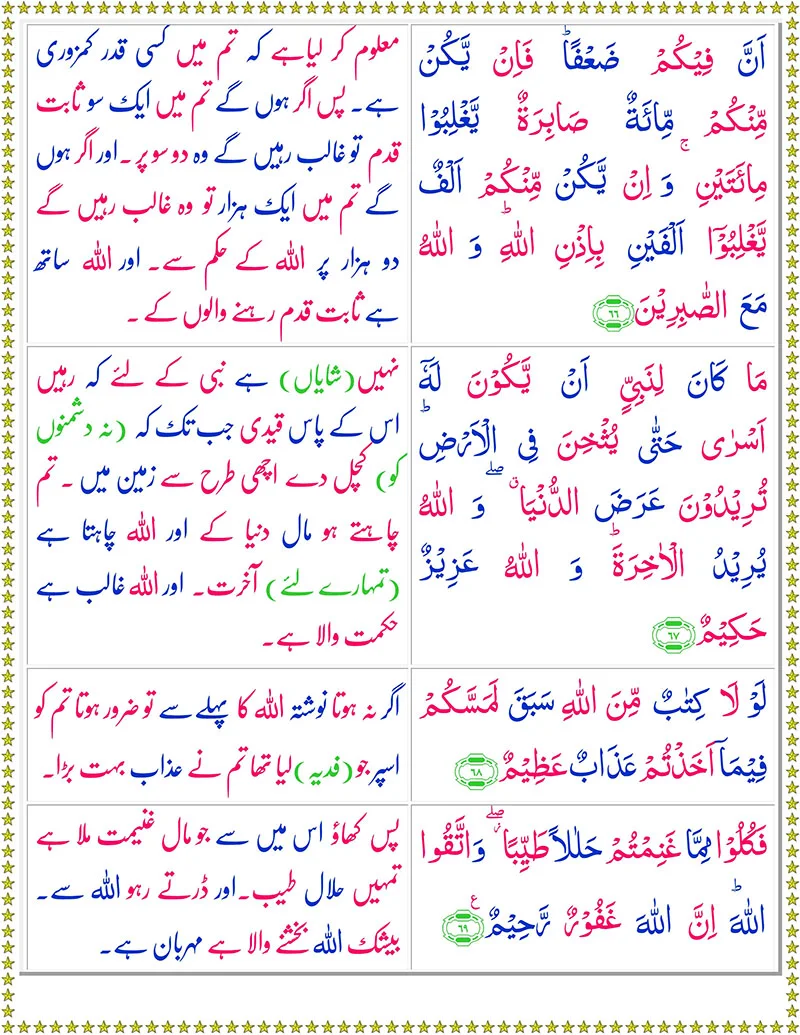 اَنَّ فِيْكُمْ ضَعْفًاؕ فَاِنْ يَّكُنْ
مِّنْكُمْ مِّائَةٌ صَابِرَةٌ يَّغْلِبُوْا
مِائَتَيْنِۚ وَ اِنْ يَّكُنْ مِّنْكُمْ اَلْفٌ
يَّغْلِبُوْۤا اَلْفَيْنِ بِاِذْنِ اللّٰهِؕ وَ اللّٰهُ
مَعَ الصّٰبِرِيْنَ ﴿٦٦﴾
معلوم کر لیاہے کہ تم میں کسی قدر کمزوری
ہے۔ پس اگر ہوں گے تم میں ایک سو ثابت
قدم تو غالب رہیں گے وہ دو سو پر ۔اور اگر ہوں
گے تم میں ایک ہزار تو وہ غالب رہیں گے
دو ہزار پر اللہ کے حکم سے۔ اور اللہ ساتھ
ہے ثابت قدم رہنے والوں کے ۔
مَا كَانَ لِنَبِيٍّ اَنْ يَّكُوْنَ لَهٗۤ
اَسْرٰى حَتّٰى يُثْخِنَ فِى الْاَرْضِؕ
تُرِيْدُوْنَ عَرَضَ الدُّنْيَا ۖۗ وَ اللّٰهُ
يُرِيْدُ الْاٰخِرَةَؕ وَ اللّٰهُ عَزِيْزٌ
حَكِيْمٌ ﴿٦٧﴾
نہیں(شایاں) ہے نبی کے لئے کہ رہیں
اس کے پاس قیدی جب تک کہ (نہ دشمنوں
کو) کچل دے اچھی طرح سے زمین میں ۔ تم
چاہتے ہو مال دنیا کے اور اللہ چاہتا ہے
(تمہارے لئے) آخرت۔ اور اللہ غالب ہے
حکمت والا ہے۔
لَوْ لَا كِتٰبٌ مِّنَ اللّٰهِ سَبَقَ لَمَسَّكُمْ
فِيْمَاۤ اَخَذْتُمْ عَذَابٌ عَظِيْمٌ ﴿٦٨﴾
اگر نہ ہوتا نوشتہ اللہ کا پہلے سے تو ضرور ہوتا تم کو
اسپر جو(فدیہ)لیا تھا تم نے عذاب بہت بڑا۔
فَكُلُوْا مِمَّا غَنِمْتُمْ حَلٰلاً طَيِّبًا ۖ وَاتَّقُوا
اللّٰهَؕ اِنَّ اللّٰهَ غَفُوْرٌ رَّحِيْمٌ ﴿٦٩﴾ ع
پس کھاؤ اس میں سے جو مال غنیمت ملا ہے
تمہیں حلال طیب۔اور ڈرتے رہو اللہ سے۔
بیشک اللہ بخشنے والا ہے مہربان ہے۔